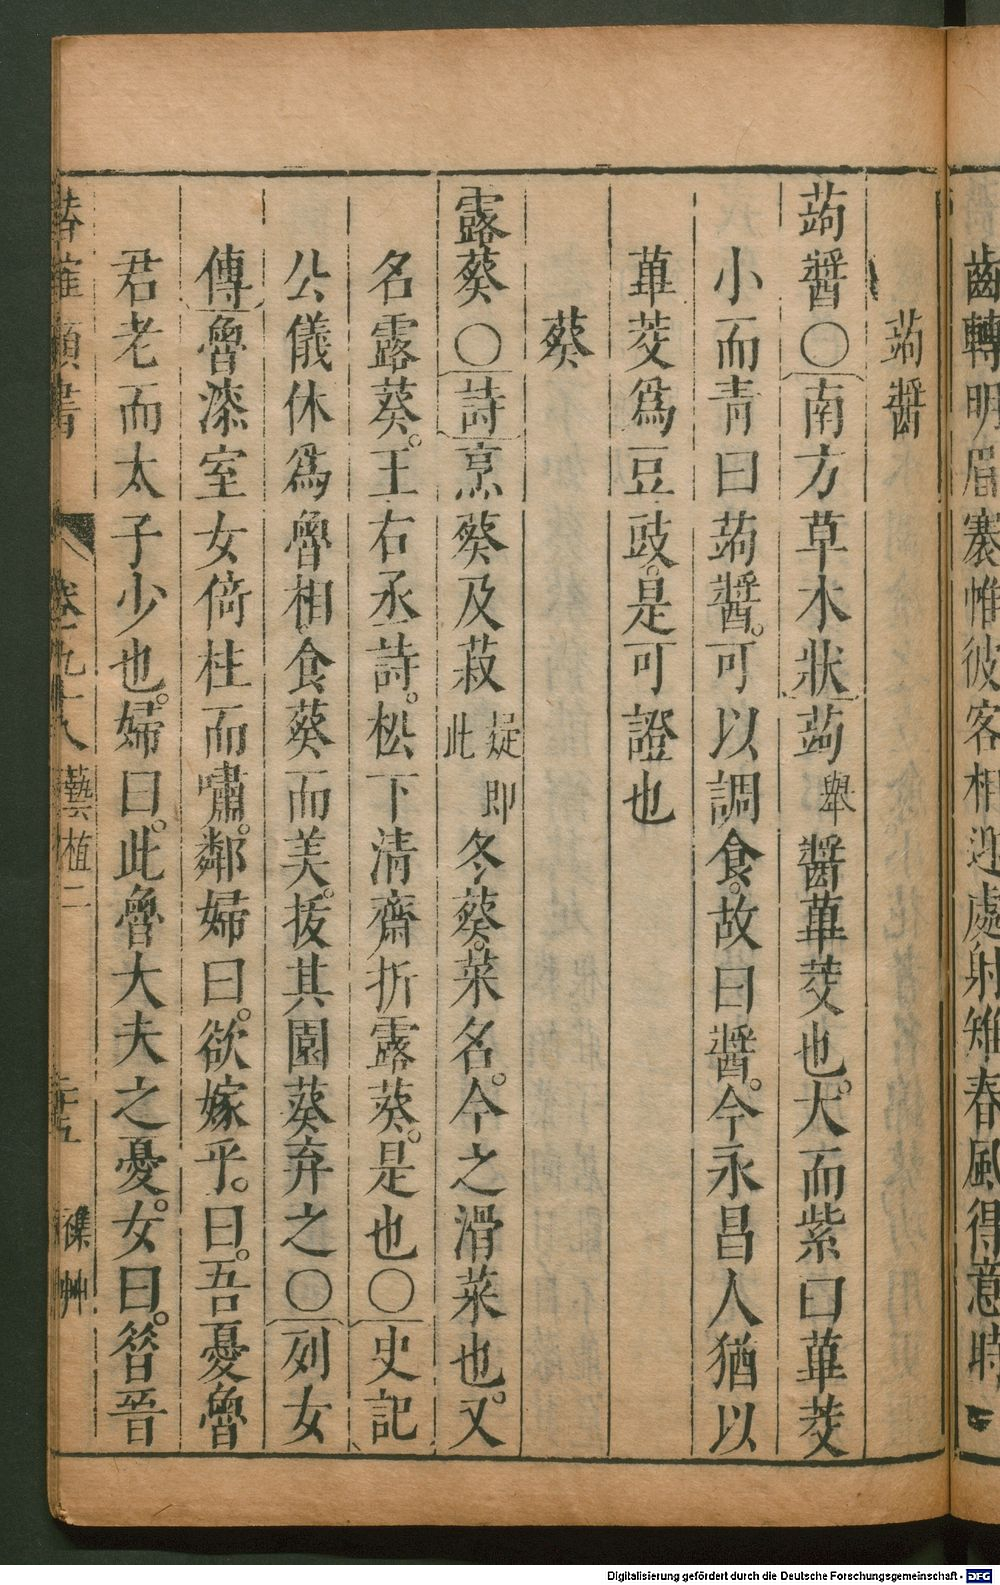 齒轉明眉褰惟彼客相迎處射雉春風得意時
蒟醬
蒟醬○南方草木狀蒟舉醬蓽茇也。大而紫曰蓽茇
小而青曰蒟醬。可以調食。故曰醬。今永昌人猶以
蓽茇爲豆豉。是可證也
葵
露葵○詩烹葵及菽按即此冬葵。菜名。今之滑菜也。又
名露葵。王右丞詩。松下清齋折露葵。是也○史記
公儀休爲魯相食葵而美。拔其園葵弃之○列女
傳魯漆室女倚柱而嘯。鄰婦曰。欲嫁乎。曰。吾憂魯
君老而太子少也。婦曰。此魯大夫之憂。女曰。昝晉
類書 卷之九十八 藝植二 二十五 襍艸
Digitalisierung gefördert durch die Deutsche Forschungsgemeinschaft - DFG